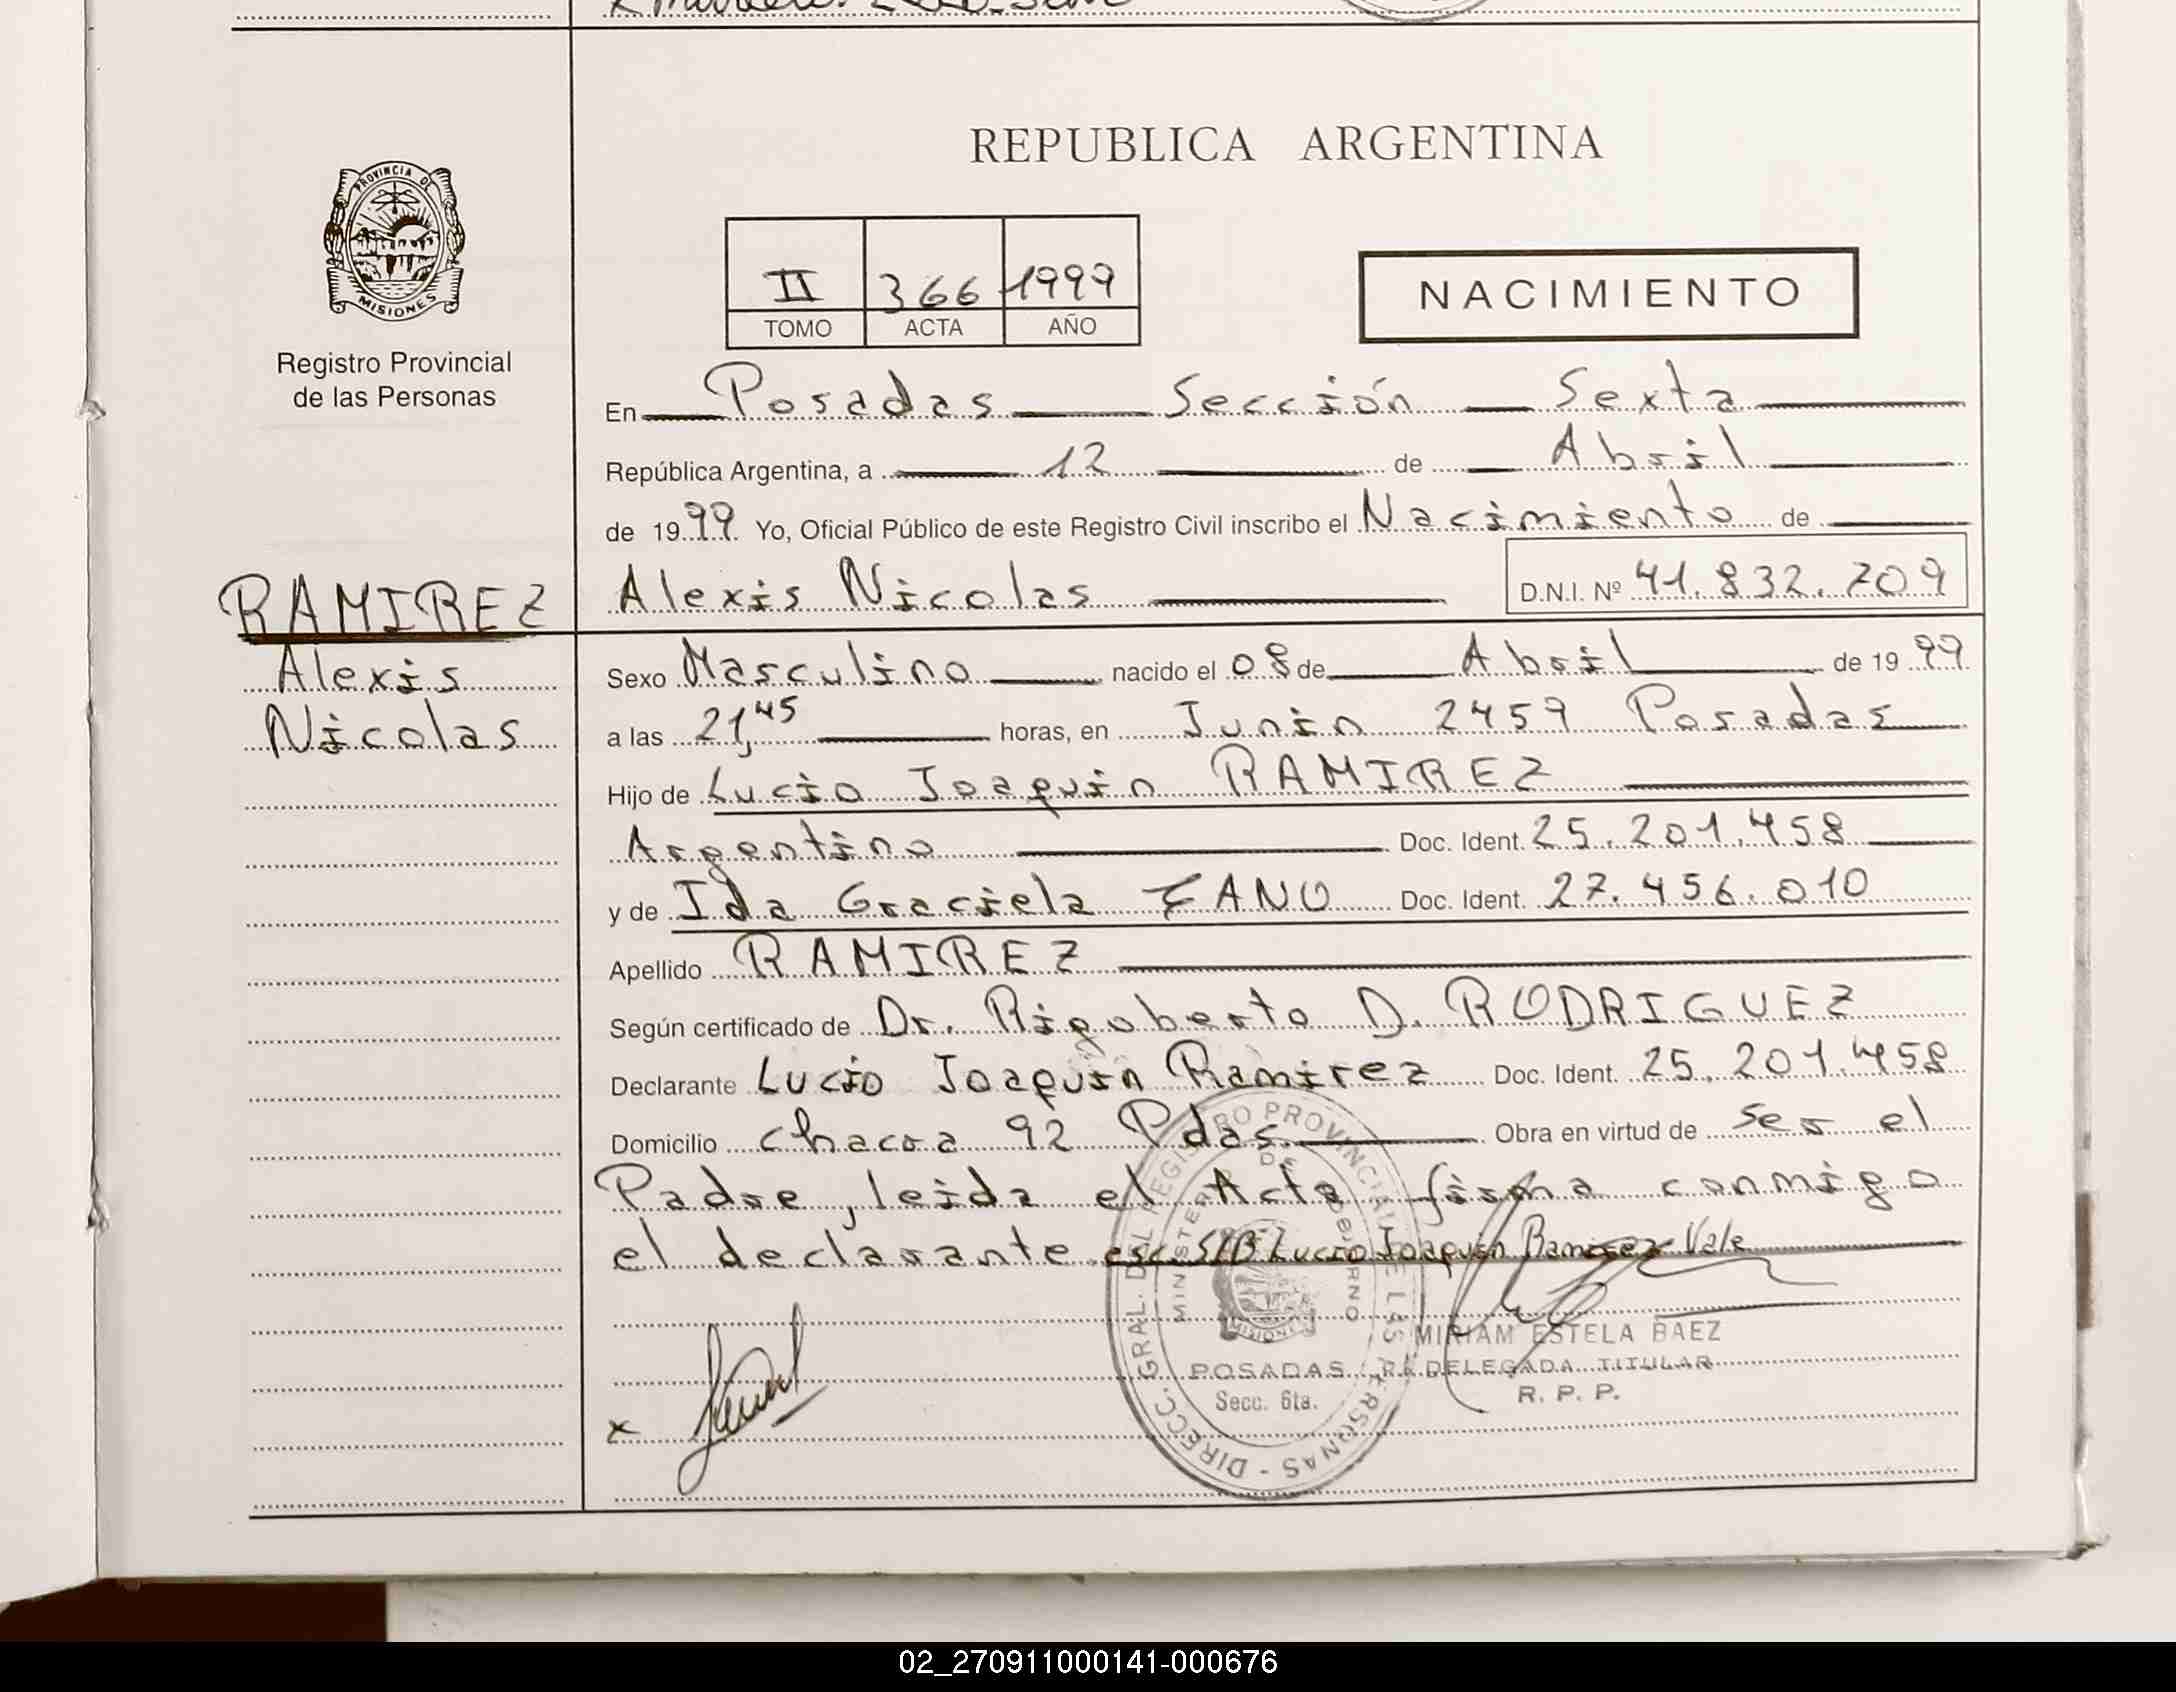 REPUBLICA ARGENTINA
PROVINCIA DE
MISIONES
Registro Provincial
de las Personas
II 366 1999
TOMO ACTA AÑO
NACIMIENTO
En Posadas Sección Sexta
República Argentina, a 12 de Abril
de 1999 Yo, Oficial Público de este Registro Civil inscribo el Nacimiento de
Alexis Nicolas D.N.I. Nº 41.832.709
RAMIREZ
Alexis
Nicolas
Sexo Masculino nacido el 08 de Abril de 1999
a las 21,45 horas, en Junin 2459 Posadas
Hijo de Lucio Joaquin RAMIREZ
Argentino Doc. Ident. 25.201.458
y de Ida Graciela Doc. Ident. 27.456.010
Apellido RAMIREZ
Según certificado de Dr. Rigoberto D. RODRIGUEZ
Declarante Lucio Joaquin Ramirez Doc. Ident. 25.201.458
Domicilio chacra 92 Pdas. Obra en virtud de ser el
Padre, leida el Acta firma conmigo
el declarante esc. S/B Lucio Joaquin Ramirez Vale
DIRECC. GRAL. DEL REGISTRO PROVINCIAL DE LAS PERSONAS
MINISTERIO DE GOBIERNO
MISIONES
POSADAS
Secc. 6ta.
MIRIAM ESTELA BAEZ
DELEGADA TITULAR
R. P. P.
x
02_270911000141-000676